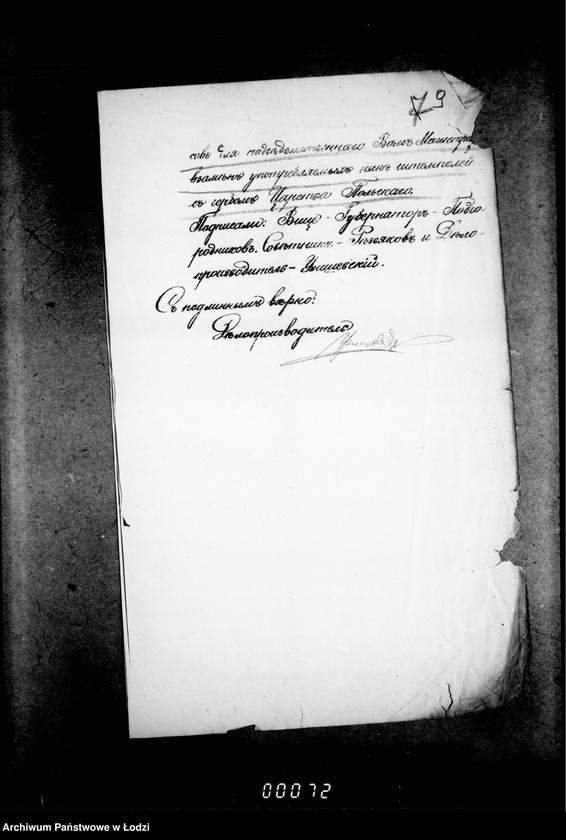 79
совъ для подвѣдомственнаго Вамъ Магистра
взамѣнъ употребляемыхъ нынѣ штемпелей
съ гербомъ Царства Польскаго.
Подписали: Вице-Губернаторъ - Подго-
родниковъ, Совѣтникъ - и Дѣло-
производитель -
Съ подлиннымъ вѣрно:
Дѣлопроизводитель
00072
Archiwum Państwowe w Łodzi